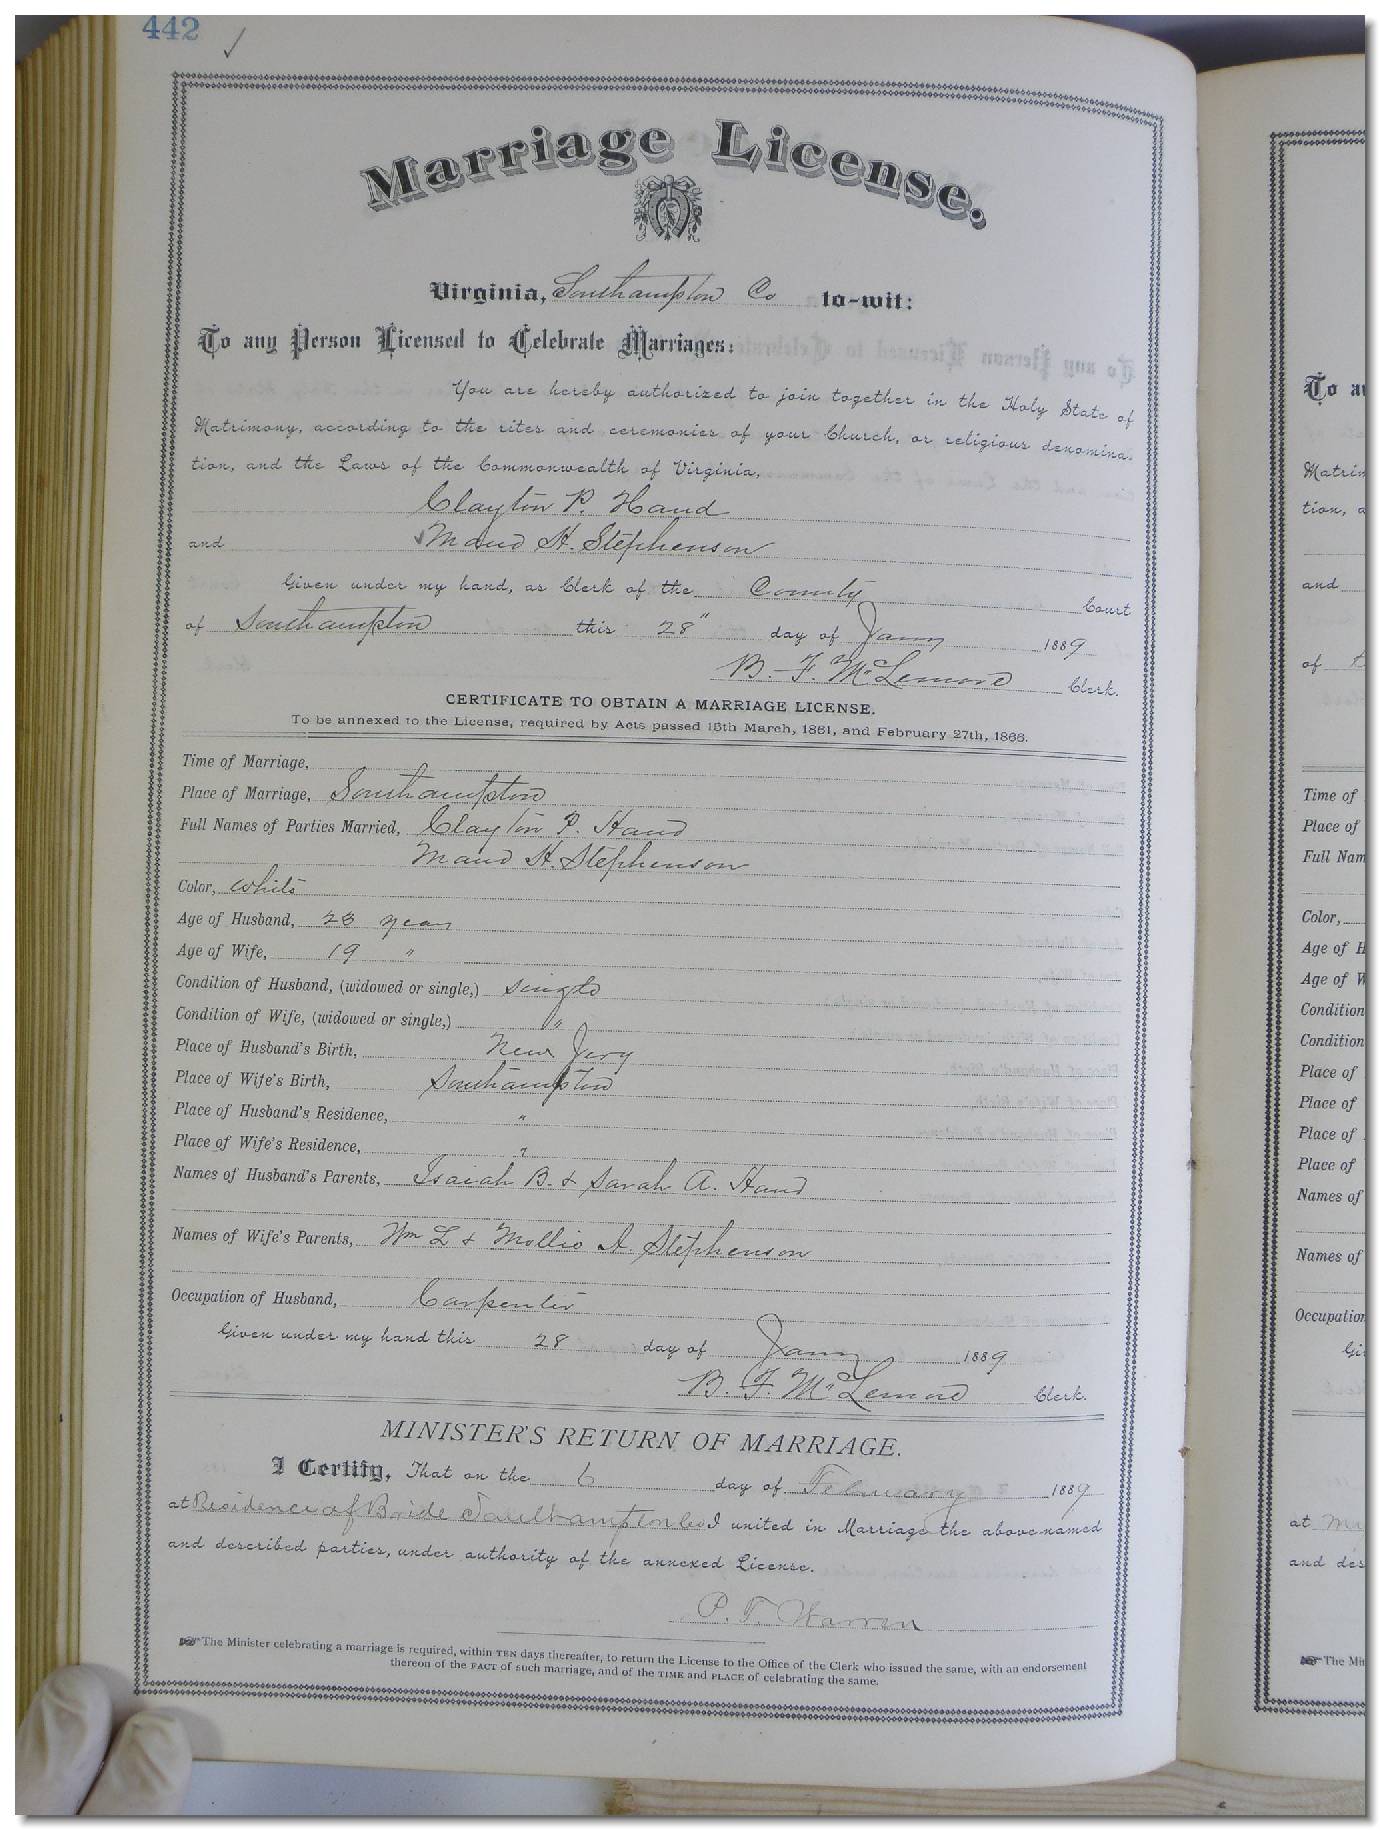 442 ✓
Marriage License.
Virginia, Southampton Co to-wit:
To any Person Licensed to Celebrate Marriages:
You are hereby authorized to join together in the Holy State of
Matrimony, according to the rites and ceremonies of your Church, or religious denomina-
tion, and the Laws of the Commonwealth of Virginia,
Clayton P. Hand
and Maud H. Stephenson
Given under my hand, as Clerk of the County Court
of Southampton this 28" day of Jany 1889
B. F. McLemore Clerk.
CERTIFICATE TO OBTAIN A MARRIAGE LICENSE.
To be annexed to the License, required by Acts passed 15th March, 1861, and February 27th, 1866.
Time of Marriage,
Place of Marriage, Southampton
Full Names of Parties Married, Clayton P. Hand
Maud H. Stephenson
Color, white
Age of Husband, 23 years
Age of Wife, 19 "
Condition of Husband, (widowed or single,) single
Condition of Wife, (widowed or single,) "
Place of Husband's Birth, New Jersy
Place of Wife's Birth, Southampton
Place of Husband's Residence, "
Place of Wife's Residence, "
Names of Husband's Parents, Isaiah B. & Sarah A. Hand
Names of Wife's Parents, Wm L & Mollie A Stephenson
Occupation of Husband, Carpenter
Given under my hand this 28 day of Jany 1889
B. F. McLemore Clerk.
MINISTER'S RETURN OF MARRIAGE.
I Certify, That on the 6 day of February 1889
at Residence of Bride Southampton Co I united in Marriage the above-named
and described parties, under authority of the annexed License.
P. T. Warren
The Minister celebrating a marriage is required, within TEN days thereafter, to return the License to the Office of the Clerk who issued the same, with an endorsement
thereon of the FACT of such marriage, and of the TIME and PLACE of celebrating the same.
To a
Matrim
tion, a
and
of
Time of
Place of
Full Nam
Color,
Age of H
Age of W
Condition
Condition
Place of
Place of
Place of
Place of
Names of
Names of
Occupation
Gi
at
and des
The Min